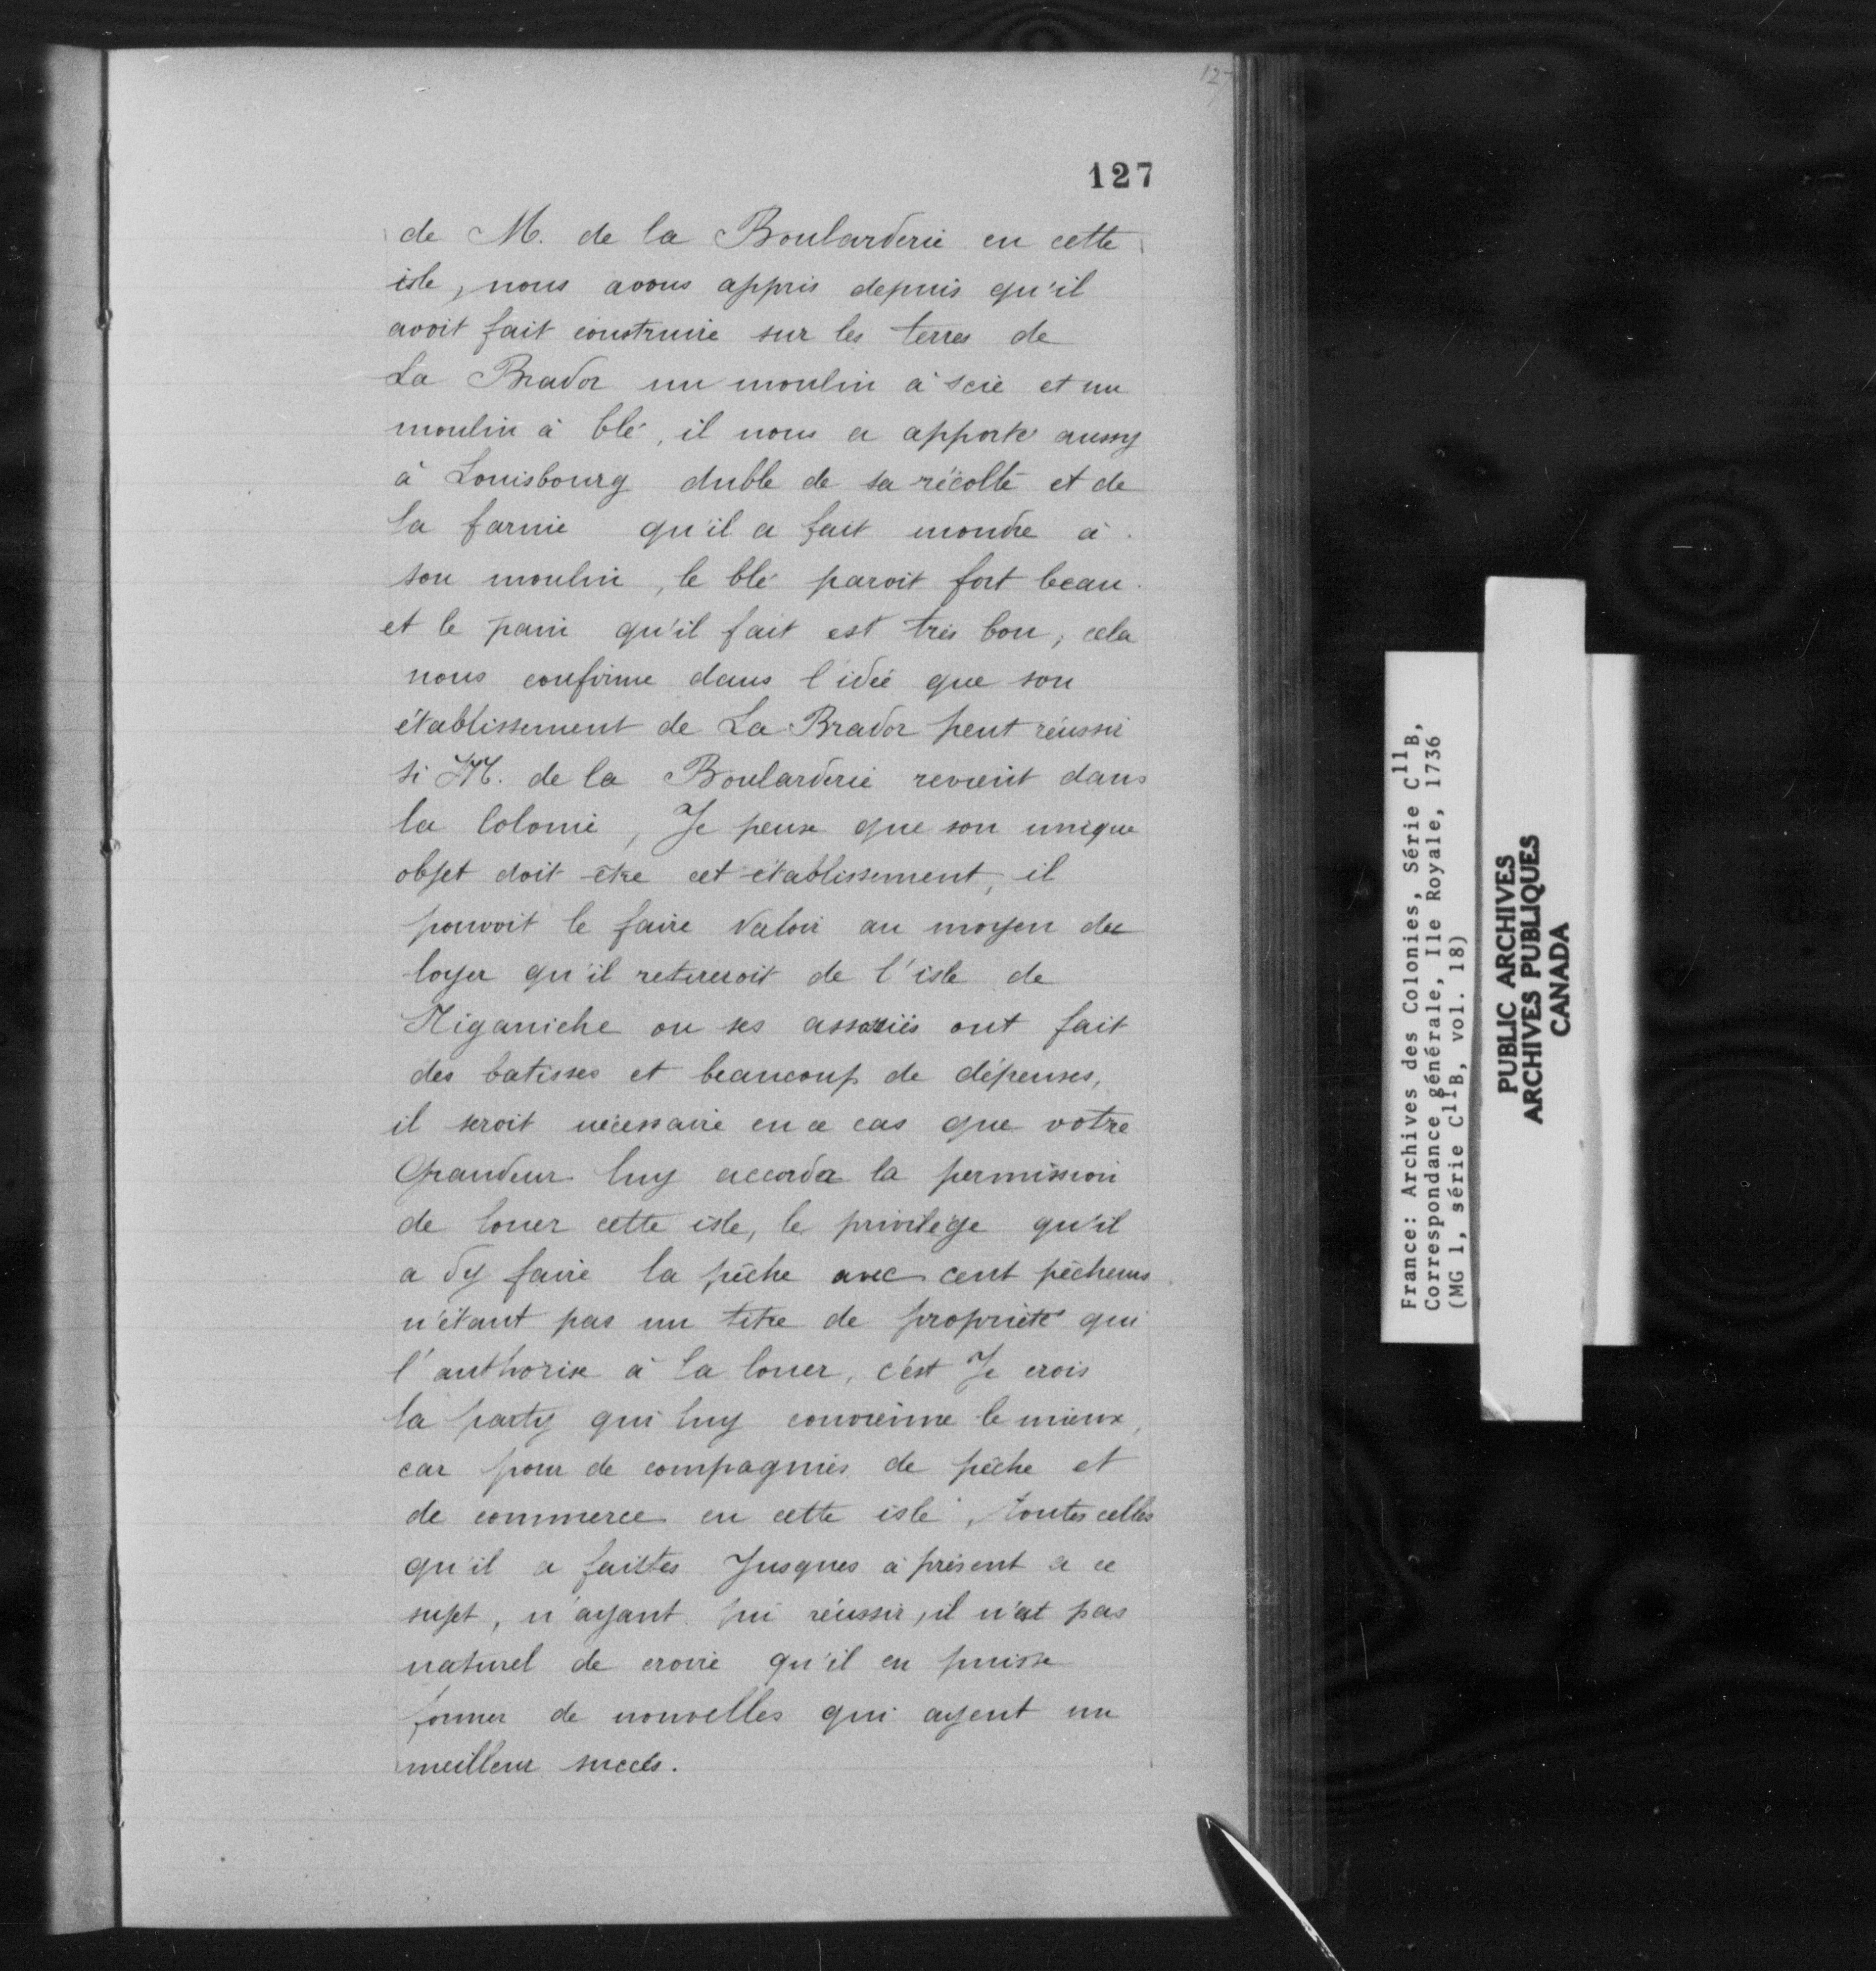 127
127
de M. de la Boularderie en cette
isle, nous avons appris depuis qu'il
avoit fait construire sur les terres de
La Brador un moulin à scie et un
moulin à blé, il nous a apporté aussy
à Louisbourg dublé de sa récolte et de
la farine qu'il a fait moudre à
son moulin, le blé paroit fort beau
et le pain qu'il fait est très bon, cela
nous confirme dans l'idée que son
établissement de La Brador peut réussir
si M. de la Boularderie revient dans
la Colonie, Je pense que son unique
objet doit être cet établissement, il
pouvoit le faire valoir au moyen du
loyer qu'il retireroit de l'isle de
Niganiche ou ses associés ont fait
des batisses et beaucoup de dépenses,
il seroit nécessaire en ce cas que votre
Grandeur luy accorda la permission
de louer cette isle, le privilège qu'il
a d'y faire la pêche avec cent pêcheurs
n'étant pas un titre de propriété qui
l'authorise à la louer, c'est Je crois
la party qui luy convienne le mieux,
car pour de compagnies de pêche et
de commerce en cette isle, toutes celles
qu'il a faites Jusques à présent a ce
sujet, n'ayant pu réussir, il n'est pas
naturel de croire qu'il en puisse
former de nouvelles qui ayent un
meilleur succès.
France: Archives des Colonies, Série C11B,
Correspondance générale, Ile Royale, 1736
(MG 1, série C11B, vol. 18)
PUBLIC ARCHIVES
ARCHIVES PUBLIQUES
CANADA